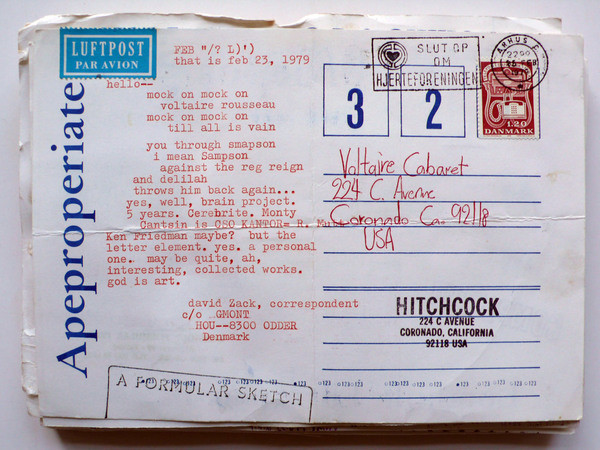 LUFTPOST
PAR AVION
Apeproperiate
FEB "/? L)')
that is feb 23, 1979
hello--
mock on mock on
voltaire rousseau
mock on mock on
till all is vain
you through smapson
i mean Sampson
against the reg reign
and delilah
throws him back again...
yes, well, brain project.
5 years. Cerebrite. Monty
Cantsin is CSO KANTOR= R. Mutt
Ken Friedman maybe? but the
letter element. yes. a personal
one.. may be quite, ah,
interesting, collected works.
god is art.
david Zack, correspondent
c/o ..GMONT
HOU--8300 ODDER
Denmark
A FORMULAR SKETCH
SLUT OP
OM
HJERTEFORENINGEN
AARHUS
1.20
DANMARK
3 2
Voltaire Cabaret
224 C. Avenue
Coronado Ca. 92118
USA
HITCHCOCK
224 C AVENUE
CORONADO, CALIFORNIA
92118 USA